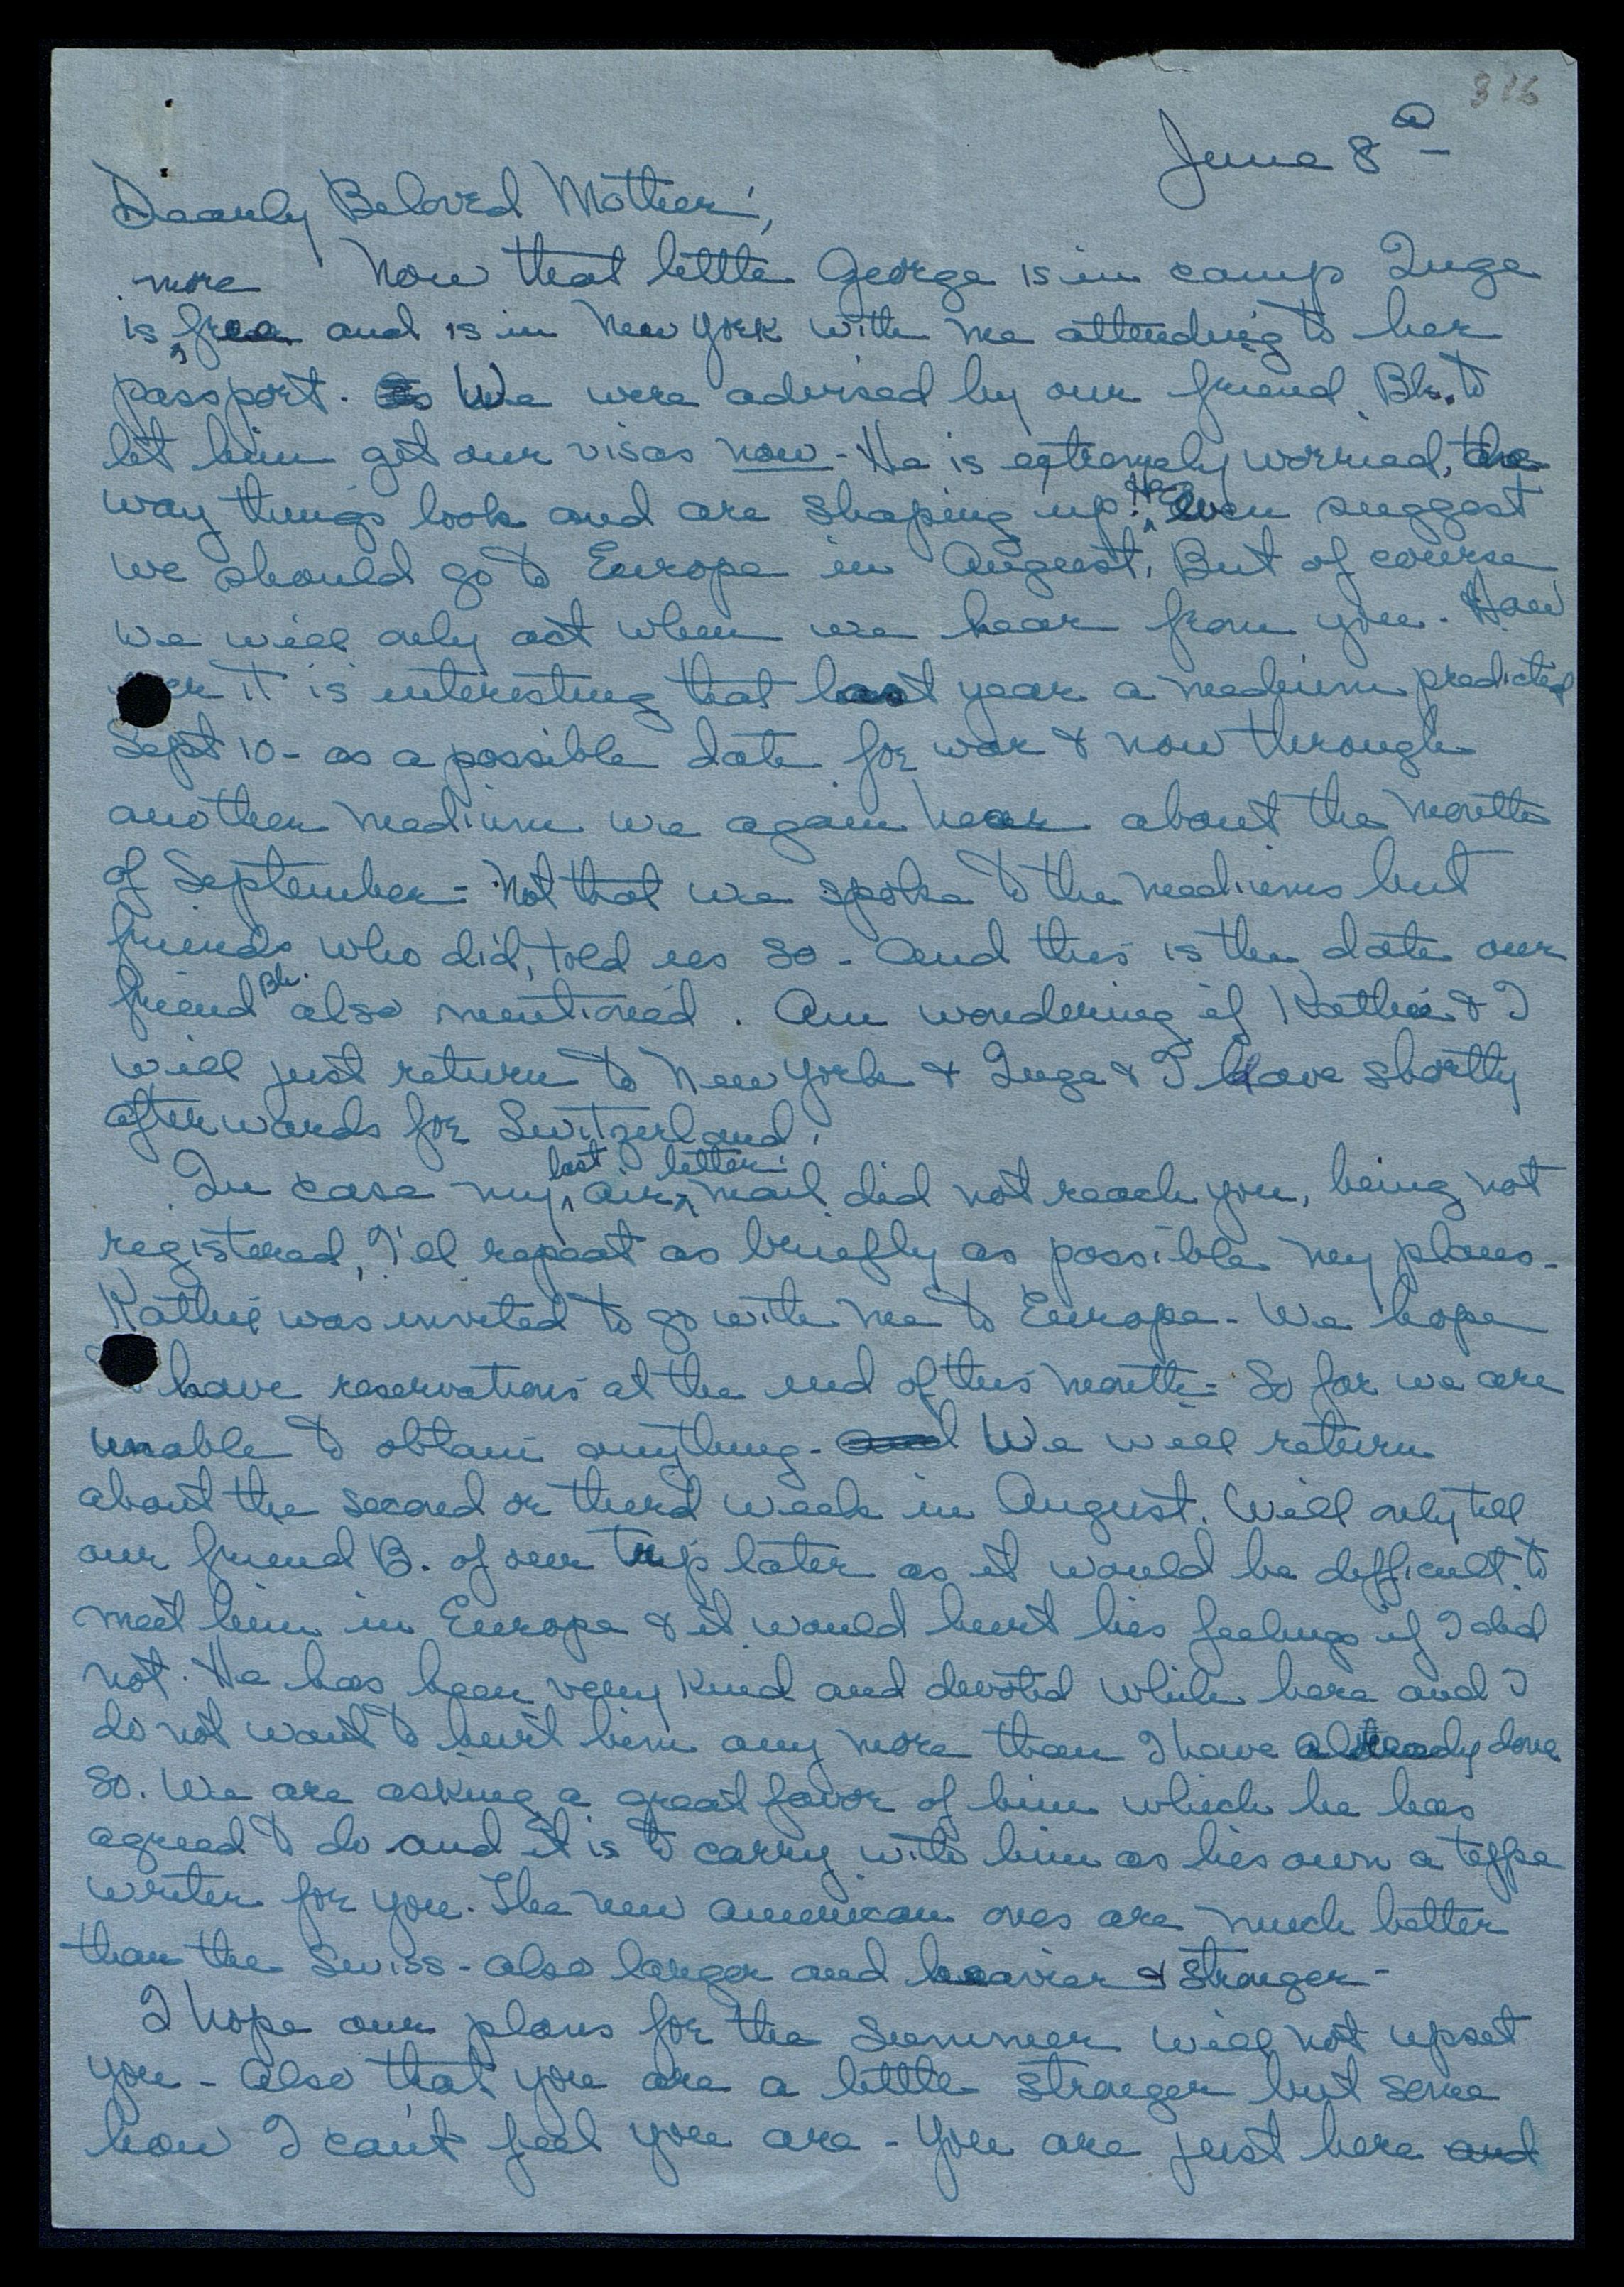 316
June 8th
Dearly Beloved Mother,
Now that little George is in camp Inge
is more free and is in New York with me attending to her
passport. We were advised by our friend Bh. to
let him get our visas now - He is extremely worried, the
way things look and are shaping up. He even suggest
we should go to Europe in August. But of course
we will only act when we hear from you. How
ever it is interesting that last year a medium predicted
Sept 10 - as a possible date for war & now through
another medium we again hear about the month
of September - Not that we spoke to the mediums but
friends who did, told us so - And this is the date our
friend Bh. also mentioned. Am wondering if Kathie & I
will just return to New York & Inge & I leave shortly
afterwards for Switzerland!
In case my last air letter mail did not reach you, being not
registered, I'll repeat as briefly as possible my plans -
Kathie was invited to go with me to Europe - We hope
to have reservations at the end of this month - So far we are
unable to obtain anything - and We will return
about the second or third week in August. Will only tell
our friend B. of our trip later as it would be difficult to
meet him in Europe & it would hurt his feelings if I did
not. He has been very kind and devoted while here and I
do not want to hurt him any more than I have already done
so. We are asking a great favor of him which he has
agreed to do and it is to carry with him as his own a type
writer for you. The new American ones are much better
than the Swiss - also larger and heavier & stronger -
I hope our plans for the Summer will not upset
you - Also that you are a little stronger but some
how I can't feel you are - You are just here and